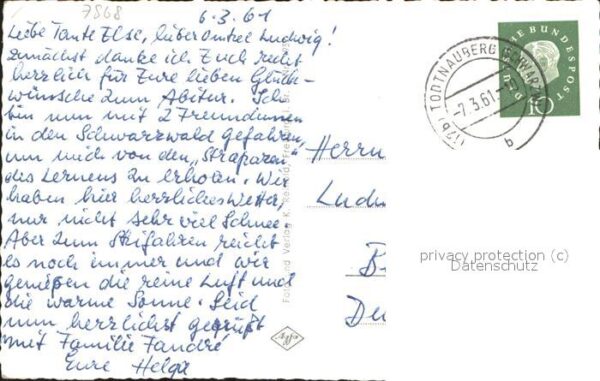 7868
6.3.61
Liebe Tante Else, lieber Onkel Ludwig!
Zunächst danke ich Euch recht
herzlich für Eure lieben Glück-
wünsche zum Abitur. Ich
bin nun mit 2 Freundinnen
in den Schwarzwald gefahren,
um mich von den "Strapazen"
des Lernens zu erholen. Wir
haben hier herrliches Wetter,
nur nicht sehr viel Schnee.
Aber zum Skifahren reicht
es noch immer und wir
genießen die reine Luft und
die warme Sonne. Seid
nun herzlichst gegrüßt
mit Familie
Eure Helga
Foto und Verlag K.
DEUTSCHE BUNDESPOST
10
(17b) TODTNAUBERG (SCHWARZW)
-7.3.61
b
Herrn
Ludw
B
Deu
privacy protection (c)
Datenschutz